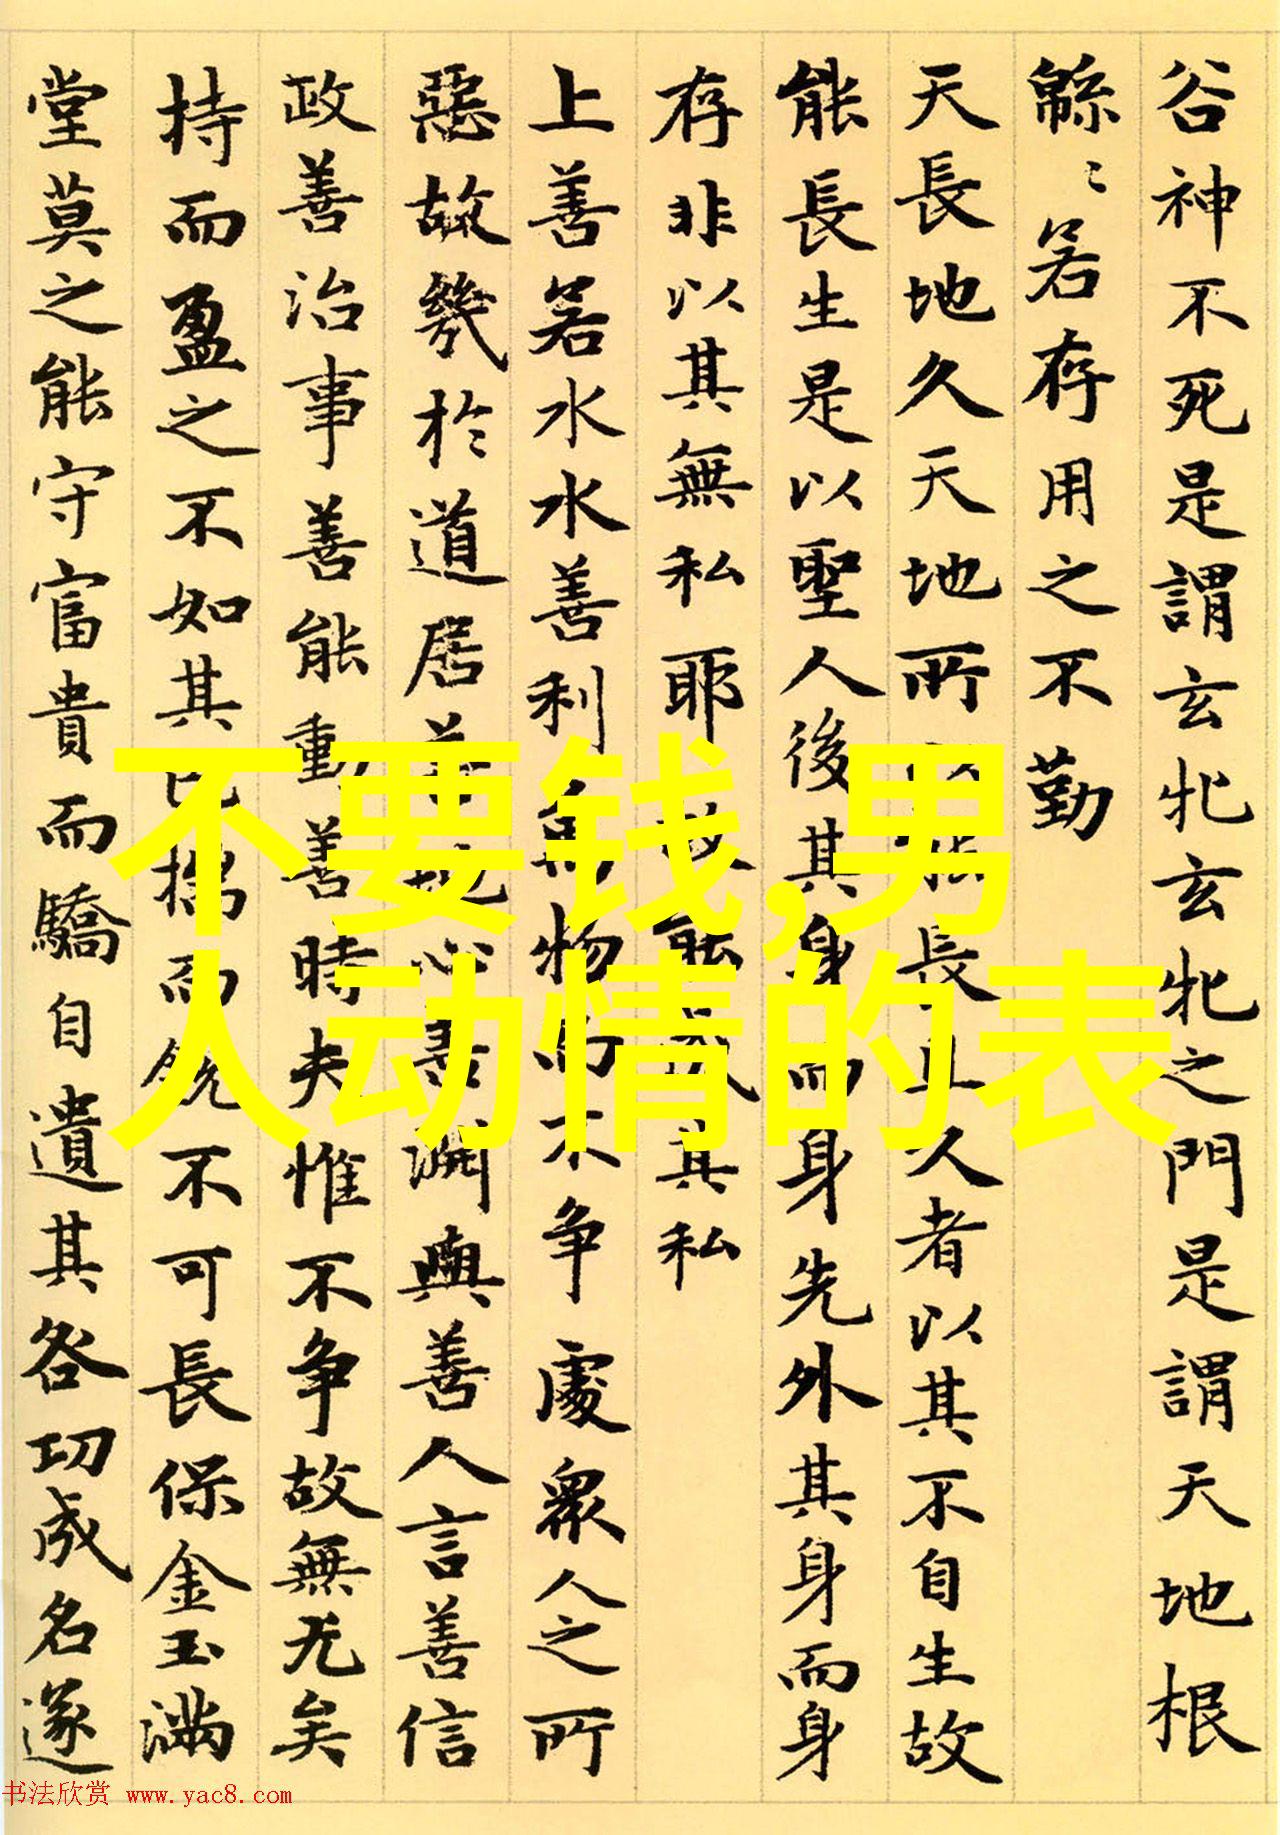 谷神不死是謂玄牝玄牝之門是謂天地根
緜〻若存用之不勤
天長地久天地所以能長且久者以其不自生故
能長生是以聖人後其身而身先外其身而身
存非以其無私耶故能成其私
上善若水水善利萬物而不争處衆人之所
惡故幾於道居善地心善渊與善人言善信
政善治事善能動善時夫惟不争故無尤矣
持而盈之不如其已揣而銳不可長保金玉满
堂莫之能守富貴而驕自遺其咎功成名遂
不要钱,男
人动情的表
书法欣赏 www.yac8.com